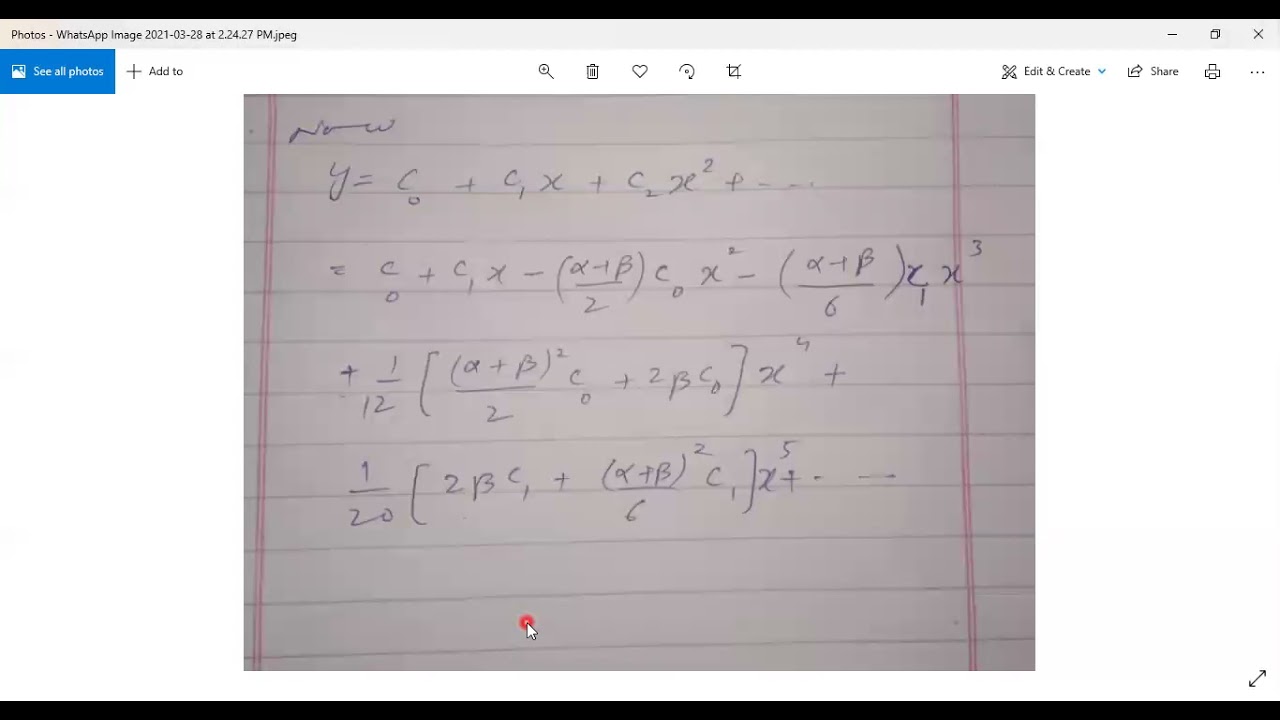 Photos - WhatsApp Image 2021-03-28 at 2.24.27 PM.jpeg
See all photos Add to Edit & Create Share
Now
y = c₀ + c₁ x + c₂ x² + - ...
= c₀ + c₁ x - (α+β/2) c₀ x² - (α+β/6) c₁ x³
+ 1/12 [(α+β)²/2 c₀ + 2βc₀] x⁴ +
1/20 [2βc₁ + (α+β)²/6 c₁] x⁵ + · —